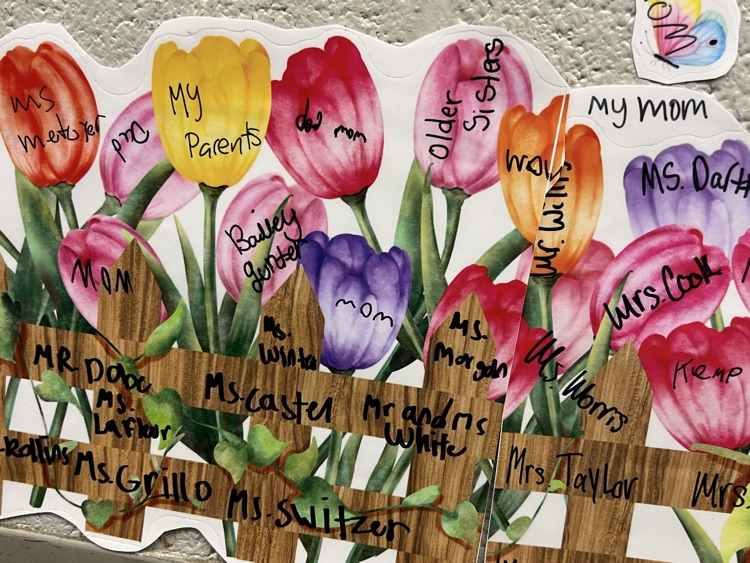 MOM
My Mom
Ms
metzger
Dad
My
Parents
dad mom
Older
Sisters
Mr. Willis
MS. Dar
Bailey
MOM
mom
Mrs. Cook
Ms.
Winta
Ms.
Morgan
Ms. Morris
Kemp
MR. Dobc
Ms.
Laflour
Ms. Castel
Mr and Ms
White
Rollins
Ms. Grillo
Ms. Switzer
Mrs. Taylor
Mrs.